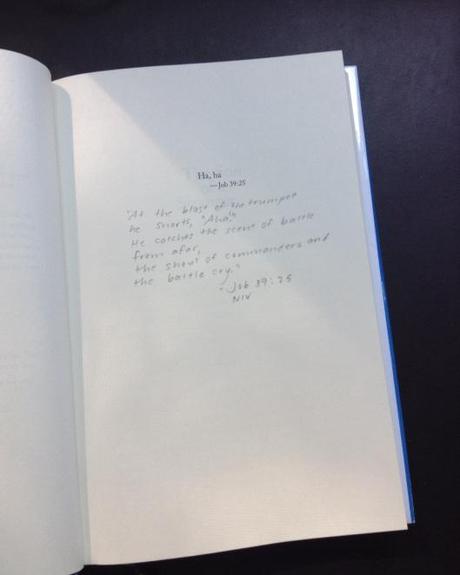 Ha, ha
—Job 39:25
"At the blast of the trumpet
he snorts, "Aha!"
He catches the scent of battle
from afar,
the shout of commanders and
the battle cry."
- Job 39:25
NIV